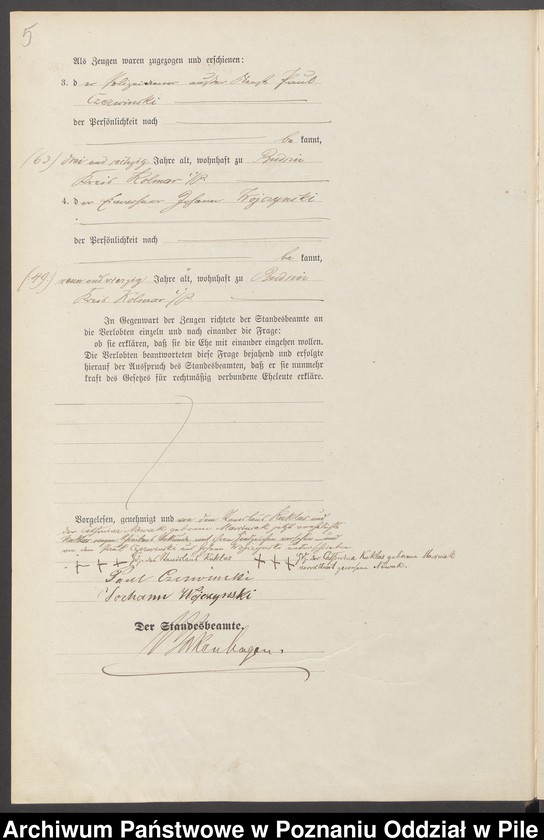 5
Als Zeugen waren zugezogen und erschienen:
3. d er Polizeidiener außer Paul
Czerwinski
der Persönlichkeit nach
be kannt,
(63) drei und sechzig Jahre alt, wohnhaft zu Budsin
Kreis Kolmar i/P
4. d er Johann Wojczynski
der Persönlichkeit nach
be kannt,
(49) neun und vierzig Jahre alt, wohnhaft zu Budsin
Kreis Kolmar i/P
In Gegenwart der Zeugen richtete der Standesbeamte an
die Verlobten einzeln und nach einander die Frage:
ob sie erklären, daß sie die Ehe mit einander eingehen wollen.
Die Verlobten beantworteten diese Frage bejahend und erfolgte
hierauf der Ausspruch des Standesbeamten, daß er sie nunmehr
kraft des Gesetzes für rechtmäßig verbundene Eheleute erkläre.
Vorgelesen, genehmigt und von dem Kuklas und
der Nowak geborene jetzt
Kuklas wegen mit ihren Handzeichen versehen und
von dem Paul Czerwinski und Johann Wojczynski unterschrieben
+++ Hz. des Kuklas +++ Hz. der Kuklas geborene
gewesene Nowak.
Paul Czerwinski
Johann Wojczynski
Der Standesbeamte.
Archiwum Państwowe w Poznaniu Oddział w Pile